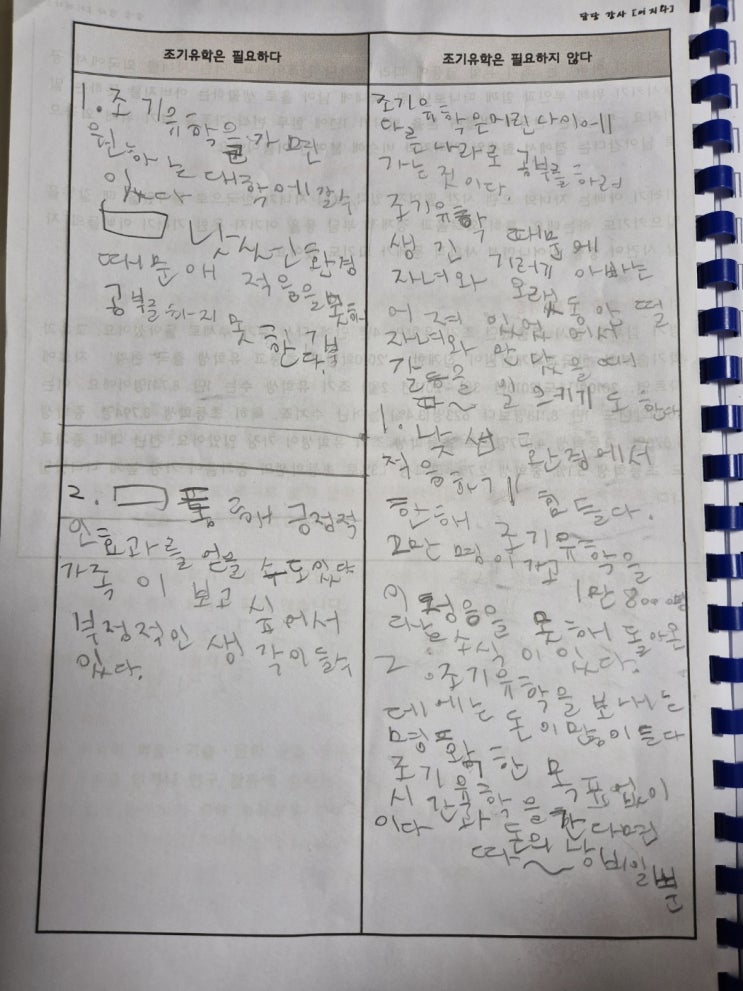 담당 강사 [이지화]
조기유학은 필요하다
1. 조기유학을 가면
원하는 대학에 갈수
있다
낯선 환경
때문애 적응을 못하
공부를 하지 못한다
2.
인 효과를 얻을 수도 있다
가족이 보고 시퍼에서
부정적인 생각이 들수
있다.
조기유학은 필요하지 않다
조기유학은 어린 나이에
다른 나라로 공부를 하러
가는 것이다.
조기유학 때문에
생긴 기러기 아빠는
자녀와 오랫동안 떨
어져 있었어서
자녀와 만났을 때
갈등을 일으키기도 한다
1. 낯선 환경에서
적응하기 힘들다.
한해 조기유학을
2만명이 가고 1만 800명
이 정응을 못해 돌아온
다는 소식이 있다.
2. 조기유학을 보내는
데에는 돈이 많이 들다
명확한 목표없이
조기유학을 한다면
시간과 돈의 낭비일 뿐
이다